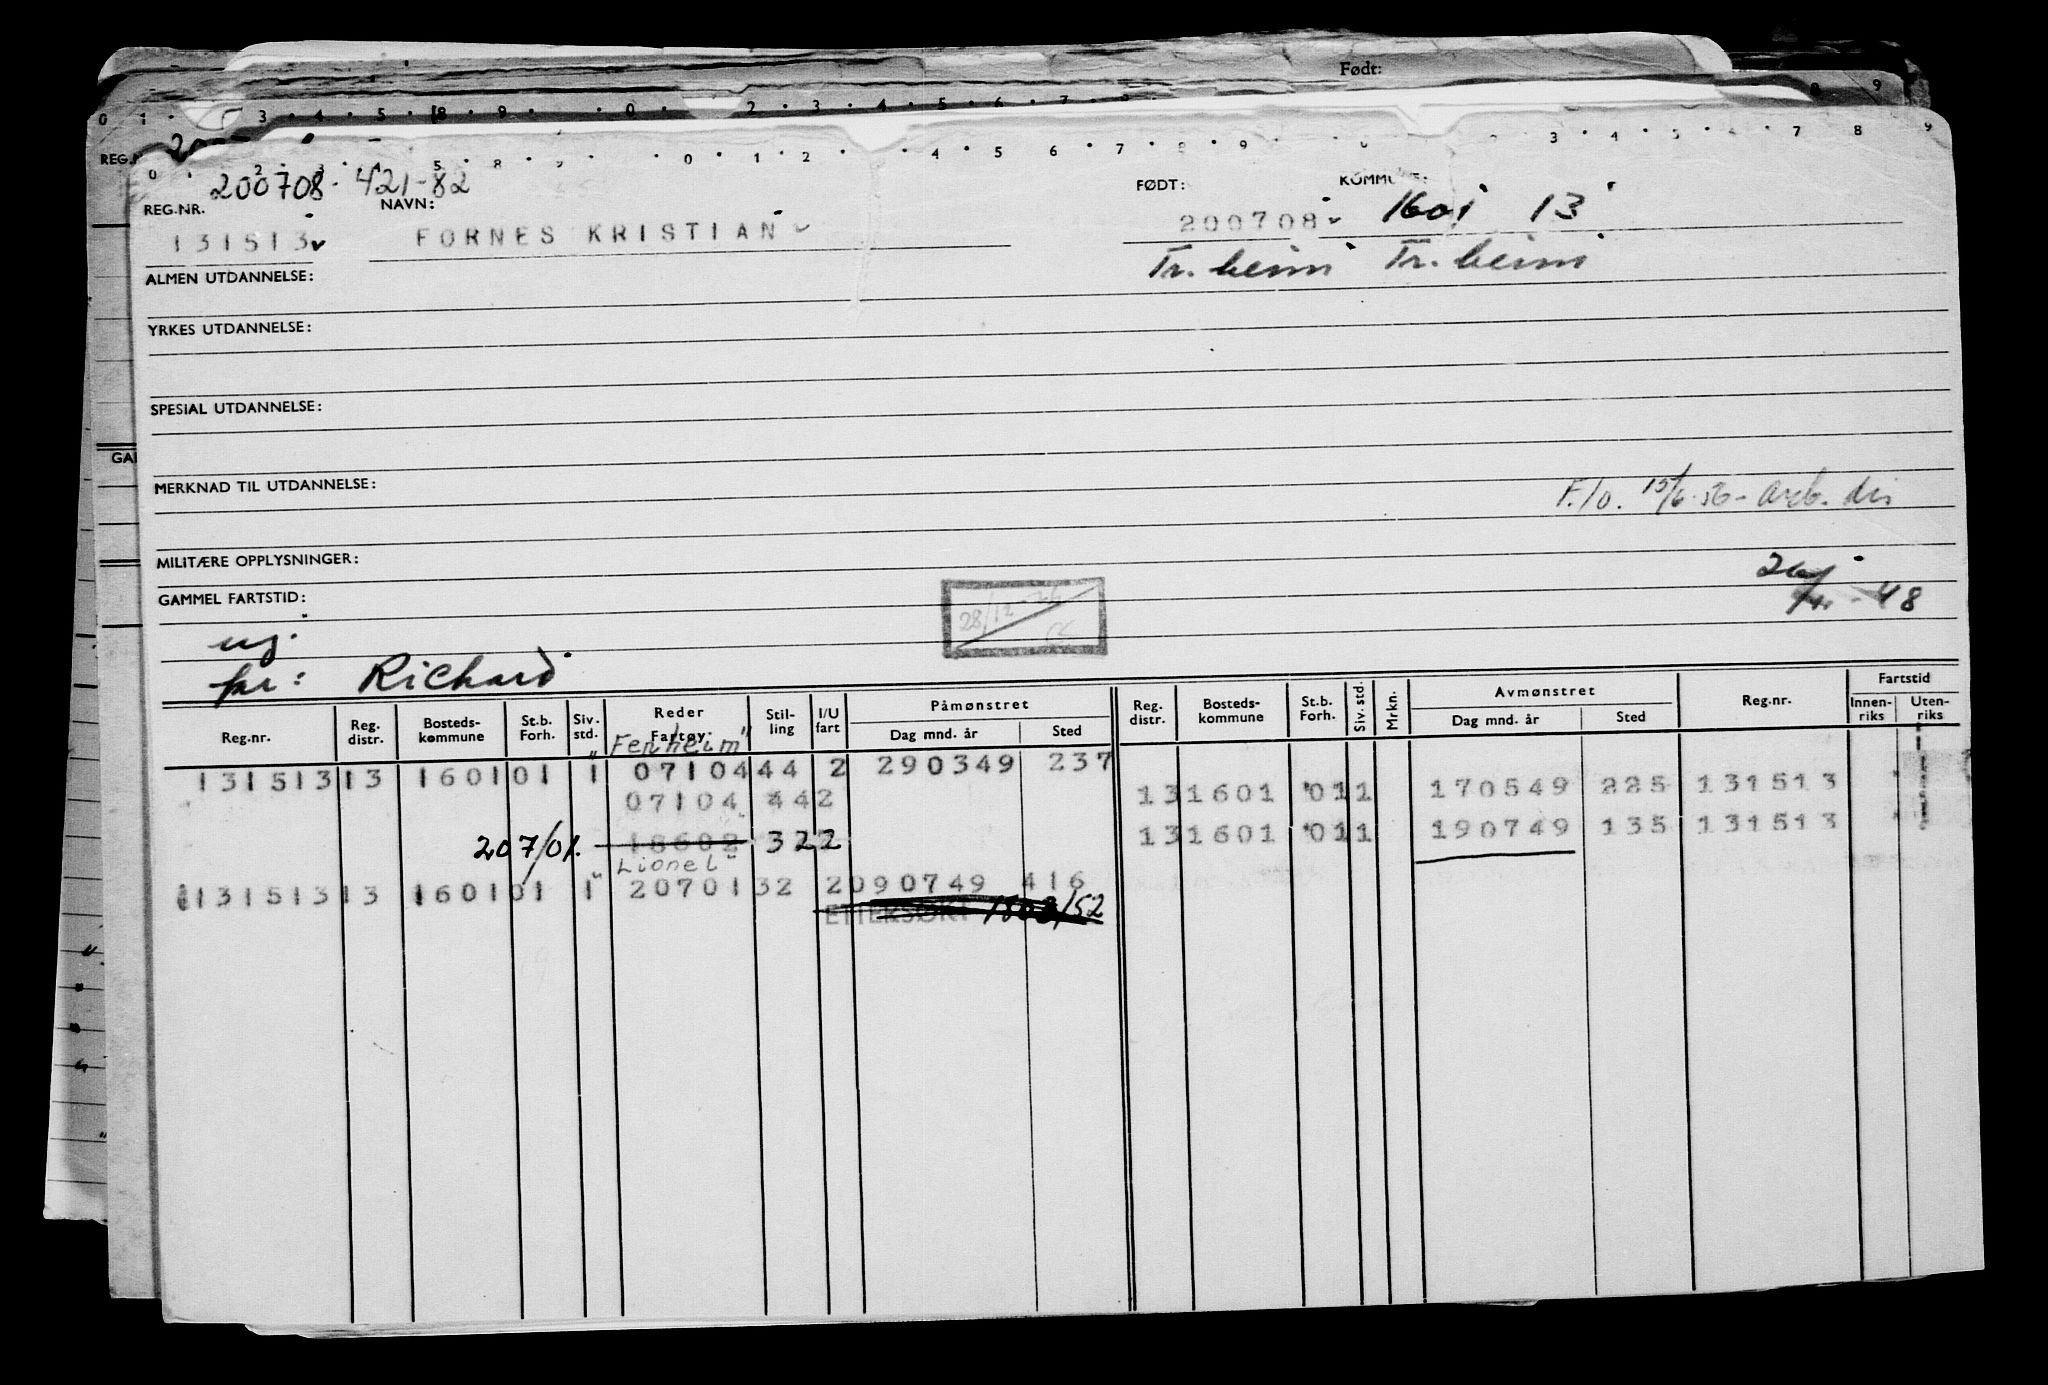 Født:
REG.N
200708-421-82
REG.NR. NAVN: FØDT: KOMMUNE:
131513 FORNES KRISTIAN 200708 1601 13
Tr.heim Tr.heim
ALMEN UTDANNELSE:
YRKES UTDANNELSE:
SPESIAL UTDANNELSE:
GA
MERKNAD TIL UTDANNELSE:
F./o. 15/6.56- arb. dir
MILITÆRE OPPLYSNINGER:
GAMMEL FARTSTID:
28/12-76
48
ug.
far: Richard
Reg.nr. Reg. distr. Bosteds-kommune St.b. Forh. Siv. std. Reder Fartøy Stil-ling I/U fart Påmønstret Dag mnd. år Sted Reg. distr. Bosteds-kommune St.b. Forh. Siv. std. Mrkn. Avmønstret Dag mnd. år Sted Reg.nr. Fartstid Innen-riks Uten-riks
"Fernheim"
131513 13 1601 01 1 07104 44 2 290349 237
07104 44 2 13 1601 01 1 170549 225 131513
207/01. 18602 32 2 13 1601 01 1 190749 135 131513
"Lionel"
131513 13 1601 01 1 20701 32 2 090749 416
ETTERSØKT 1803/52